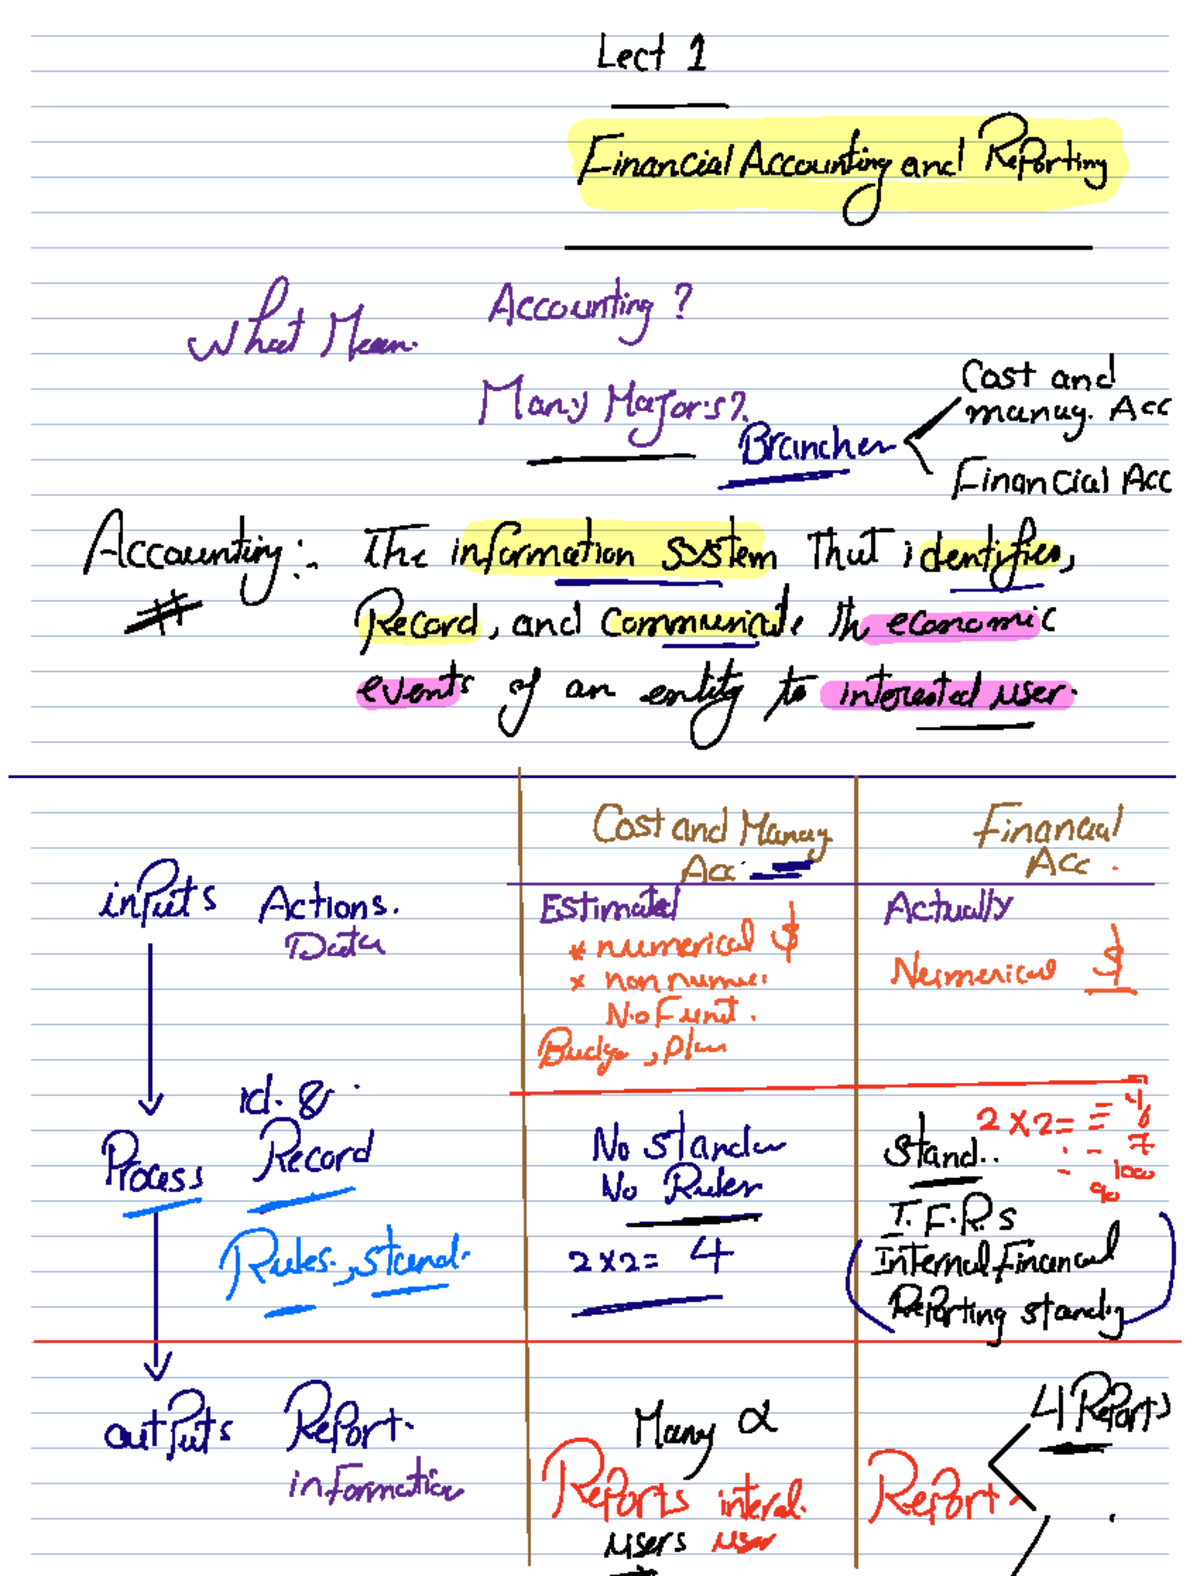 Lect 1
Financial Accounting and Reporting
What Mean. Accounting ?
Many Majors?
Branches
Cost and
manag. Acc
Financial Acc
Accounting: The information system That identifies,
Record, and communicate the economic
events of an entity to interested user.
Cost and Manag
Acc.
Financial
Acc.
inputs Actions.
Data
Estimated
* numerical $
x non nume.
No Funt.
Budge, plan
Actually
Numerical $
id. &
Process Record
Rules., stand.
No Standar
No Rules
2x2= 4
2x2=
Stand..
I.F.R.S
Internal Financial
Reporting
outputs Report.
information
Many
Reports internal.
users user
4 Reports
Report.